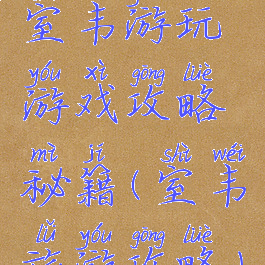 室韦游玩
yóu xì gōng lüè
游戏攻略
mì jí shì wéi
秘籍(室韦
lǚ yóu gōng lüè
旅游攻略)